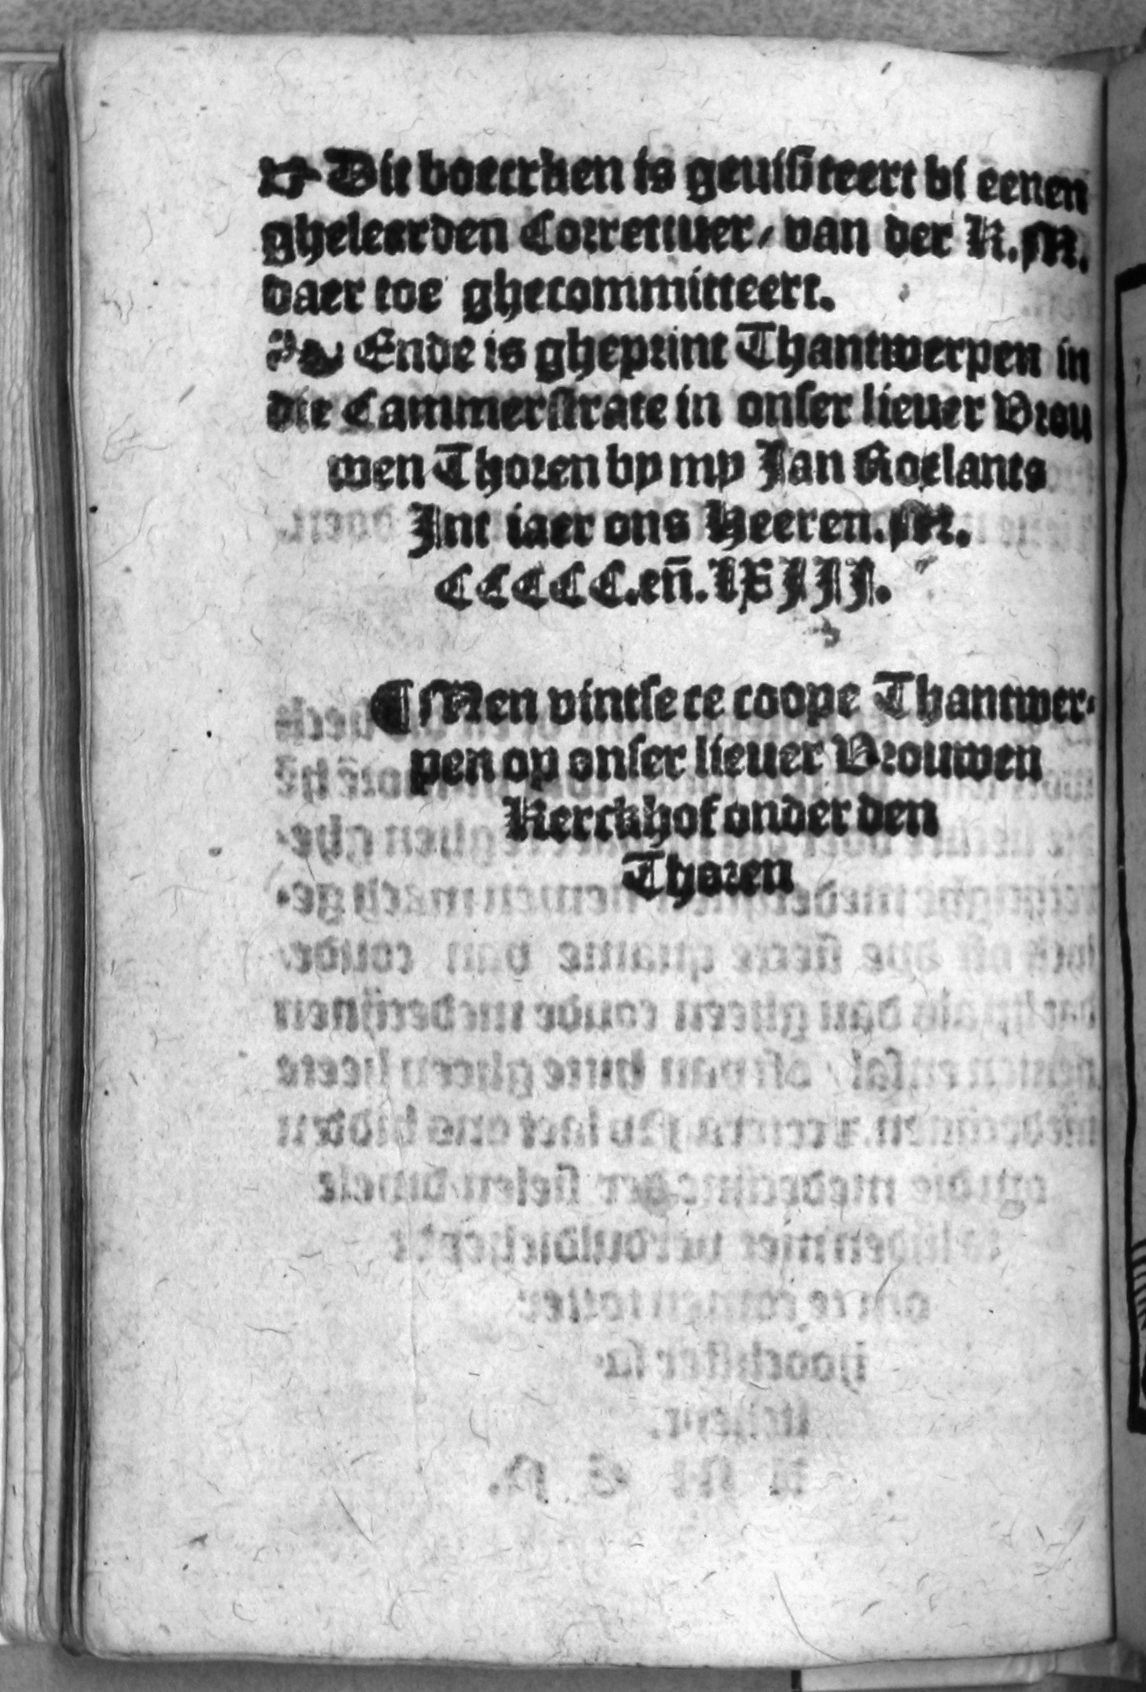 ☞ Dit boecrken is geuisiteert bi eenen
gheleerden Correttuer / van der K. M.
daer toe ghecommitteert.
❧ Ende is gheprint Thantwerpen in
die Cammerstrate in onser lieuer Vrou
wen Thoren by my Jan Roelants
Int iaer ons Heeren. M.
CCCCC. eñ. LXIII.
¶ Men vintse te coope Thantwer-
pen op onser lieuer Vrouwen
Kerckhof onder den
Thoren